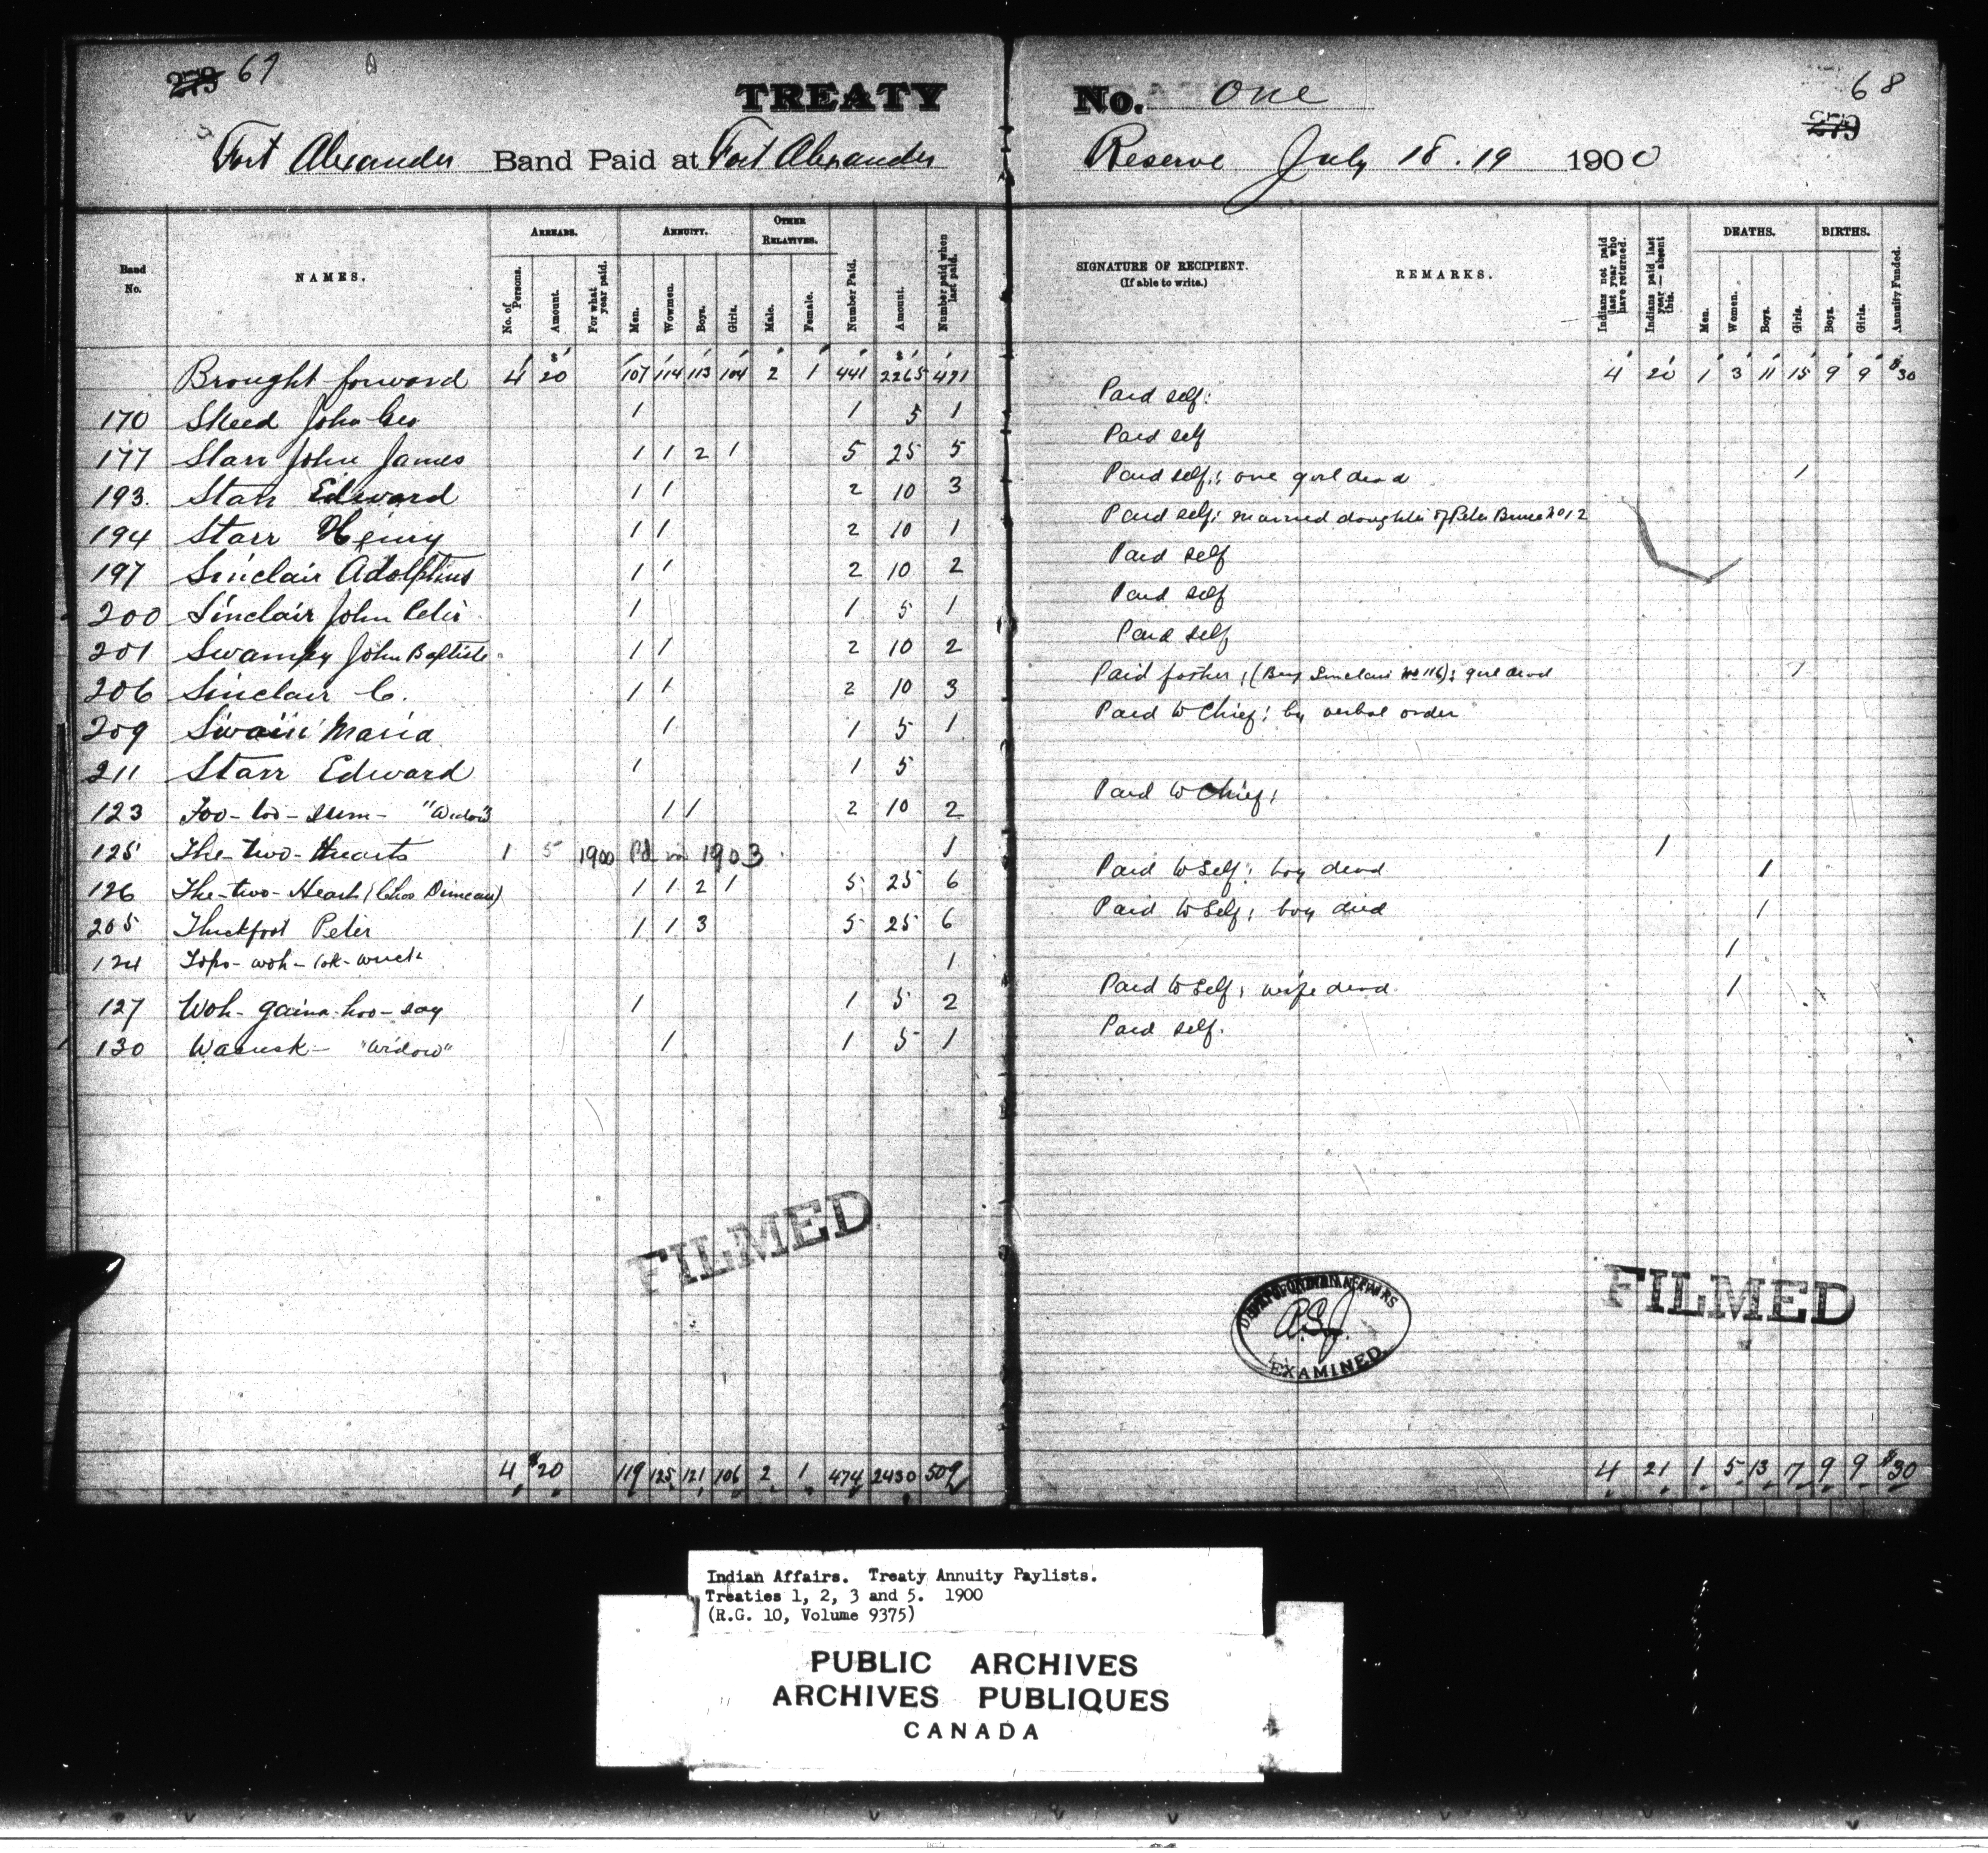 279 67
TREATY No. One
68
279
Fort Alexander Band Paid at Fort Alexander Reserve July 18.19 1900
Band No. NAMES. ARREARS. No. of Persons. Amount. For what year paid. ANNUITY. Men. Women. Boys. Girls. OTHER RELATIVES. Male. Female. Number Paid. Amount. Number paid when last paid. SIGNATURE OF RECIPIENT. (If able to write.) REMARKS. Indians not paid last year who have returned. Indians paid last year—absent this. DEATHS. Men. Women. Boys. Girls. BIRTHS. Boys. Girls. Annuity Funded.
Brought forward 4 $20 107 114 113 104 2 1 441 $2265 471 4 20 1 3 11 15 9 9 $30
170 Skeed John Geo 1 1 5 1 Paid self:
177 Starr John James 1 1 2 1 5 25 5 Paid self
193 Starr Edward 1 1 2 10 3 Paid self: one girl dead 1
194 Starr Henry 1 1 2 10 1 Paid self: married daughter of Peter Bruce No 12
197 Sinclair Adolphus 1 1 2 10 2 Paid self
200 Sinclair John Peter 1 1 5 1 Paid self
201 Swampy John Baptiste 1 1 2 10 2 Paid self
206 Sinclair C. 1 1 2 10 3 Paid father; (Benj Sinclair No 116): girl dead 1
209 Swain Maria 1 1 5 1 Paid to Chief: by verbal order
211 Starr Edward 1 1 5
123 "Widow" 1 1 2 10 2 Paid to Chief:
125 The-two-Hearts 1 5 1900 Pd in 1903 1 1
126 The-two-Heart 1 1 2 1 5 25 6 Paid to Self: boy dead 1
205 Thickfoot Peter 1 1 3 5 25 6 Paid to Self: boy died 1
124 1 1
127 Woh-gaina-hoo-say 1 1 5 2 Paid to Self: wife dead 1
130 "Widow" 1 1 5 1 Paid self.
FILMED
FILMED
DEPT OF INDIAN AFFAIRS
EXAMINED
4 $20 119 125 121 106 2 1 474 2430 509 4 21 1 5 13 17 9 9 $30
Indian Affairs. Treaty Annuity Paylists.
Treaties 1, 2, 3 and 5. 1900
(R.G. 10, Volume 9375)
PUBLIC ARCHIVES
ARCHIVES PUBLIQUES
CANADA